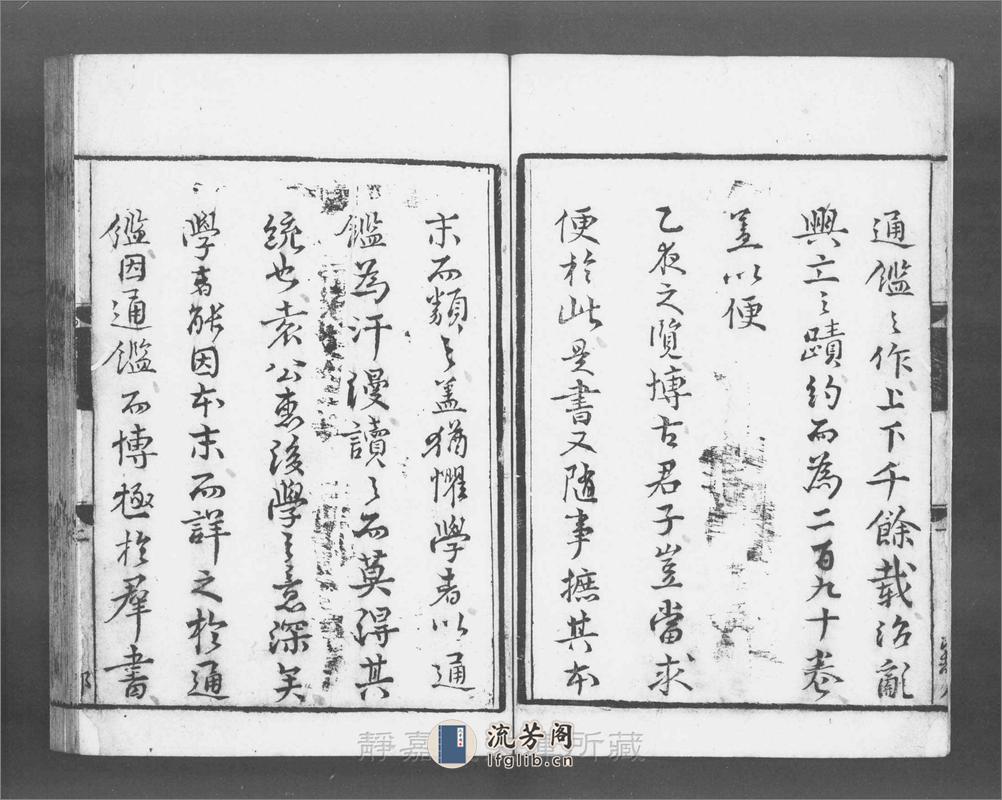 通鑑之作上下千餘載治亂
興亡之蹟約而為二百九十卷
蓋以便
乙夜之覽博古君子豈當求
便於此是書又隨事摭其本
末而類之蓋猶懼學者以通
鑑為汗漫讀之而莫得其
統也袁公惠後學之意深矣
學者能因本末而詳之於通
鑑因通鑑而博極於羣書
静嘉 所藏
流芳阁
lfglib.cn